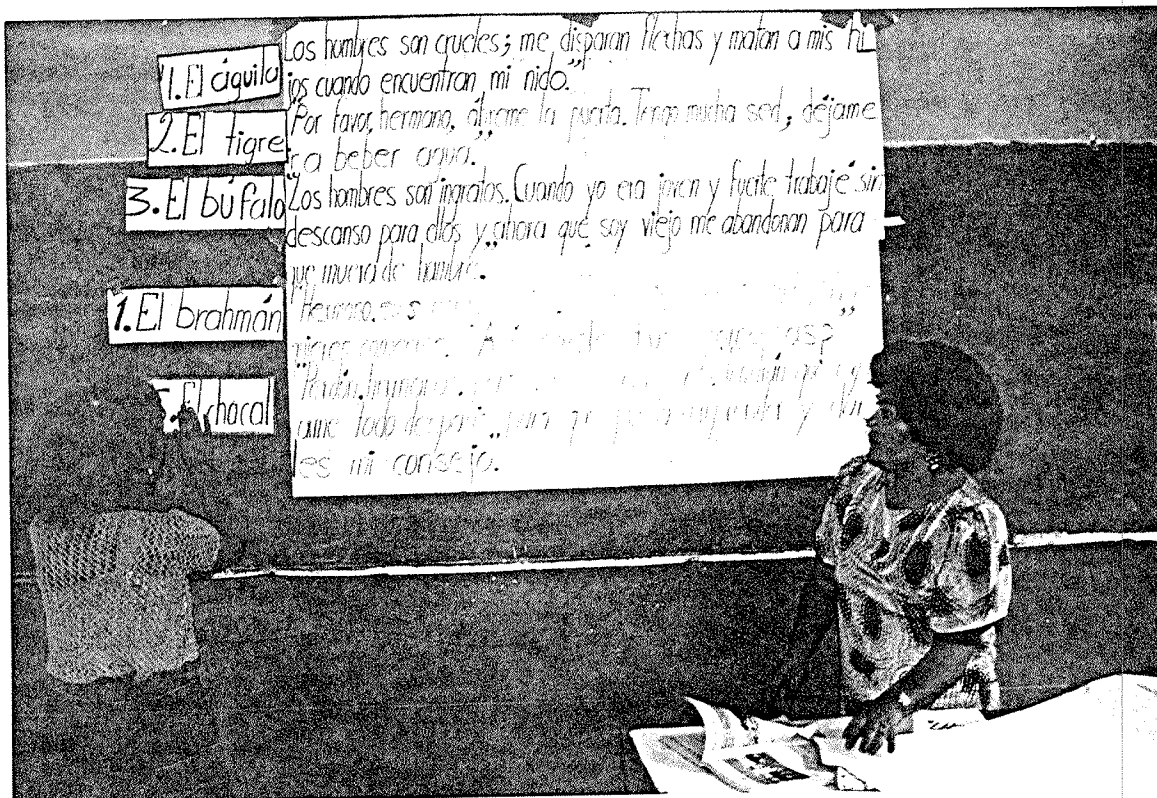 1. El águila
2. El tigre
3. El búfalo
1. El brahmán
El chacal
Los hombres son crueles; me disparan flechas y matan a mis hi
jos cuando encuentran mi nido."
"Por favor, hermano, ábreme la puerta. Tengo mucha sed; déjame
ir a beber agua."
"Los hombres son ingratos. Cuando yo era joven y fuerte trabajé sin
descanso para ellos y ahora que soy viejo me abandonan para
que muera de hambre."
"Hermano,
tus quejas?"
"Perdón, hermanos,
me todo después para que pueda y dar
les mi consejo.